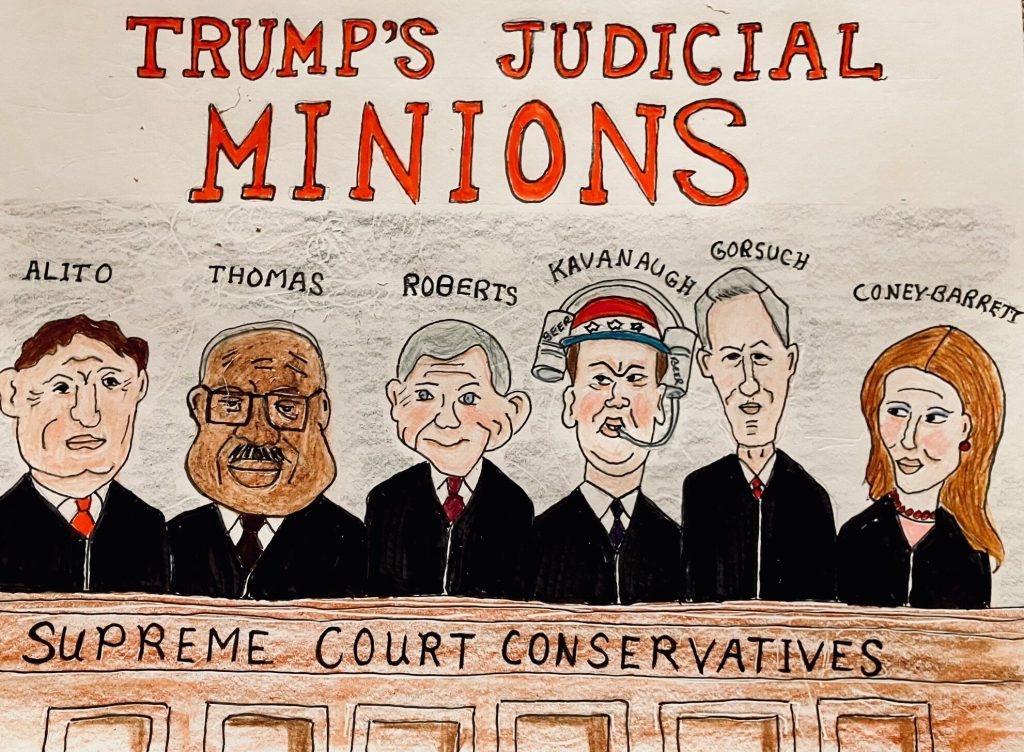 TRUMP'S JUDICIAL
MINIONS
ALITO
THOMAS
ROBERTS
KAVANAUGH
GORSUCH
CONEY-BARRETT
BEER
BEER
SUPREME COURT CONSERVATIVES